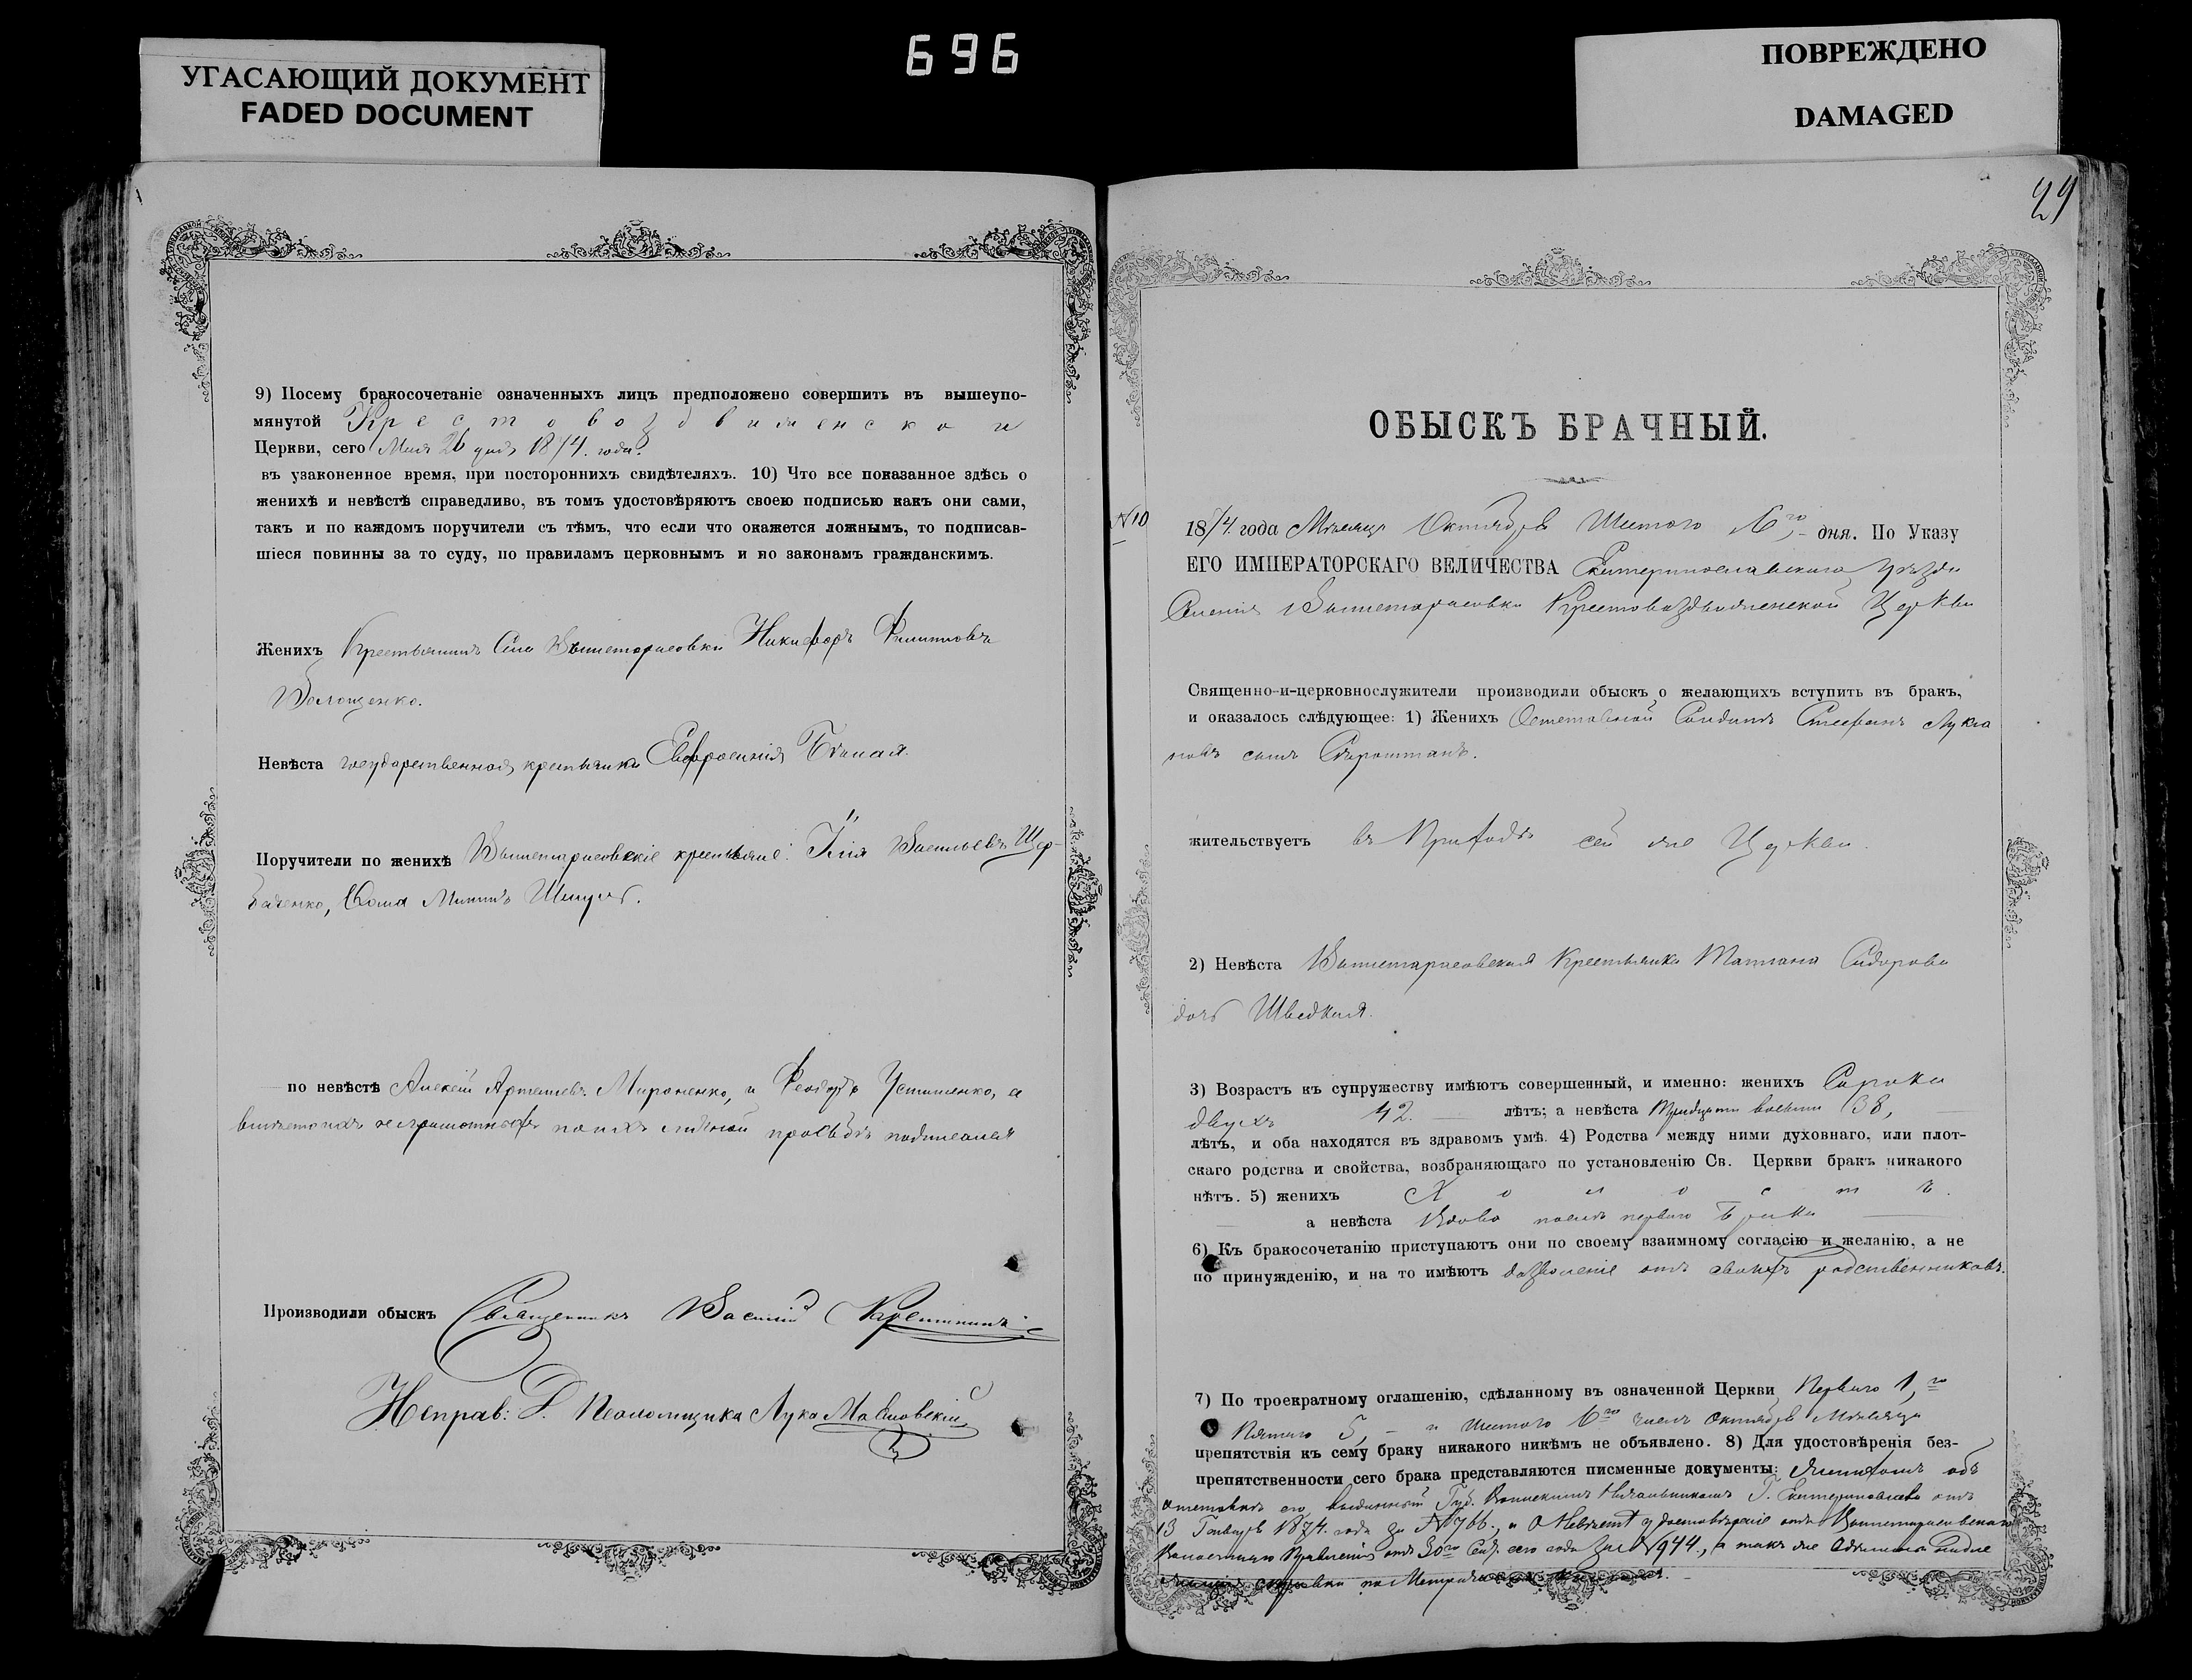 УГАСАЮЩИЙ ДОКУМЕНТ
FADED DOCUMENT
696
ПОВРЕЖДЕНО
DAMAGED
9) Посему бракосочетаніе означенныхъ лицъ предположено совершить въ вышеупо-
мянутой Крестовоздвиженской
Церкви, сего Мая 26 дня 1874. года.
въ узаконенное время, при постороннихъ свидѣтеляхъ. 10) Что все показанное здѣсь о
женихѣ и невѣстѣ справедливо, въ томъ удостовѣряютъ своею подписью какъ они сами,
такъ и по каждомъ поручители съ тѣмъ, что если что окажется ложнымъ, то подписав-
шіеся повинны за то суду, по правиламъ церковнымъ и по законамъ гражданскимъ.
Женихъ Крестьянинъ Села Вышетарасовки Никифоръ Филипповъ
Волощенко.
Невѣста государственная крестьянка Евфросинія Бѣлая.
Поручители по женихѣ Вышетарасовскіе крестьяне: Илія Васильевъ Щер-
баченко, Фома Мининъ
по невѣстѣ Алексій Артемьевъ Мироненко, и Феодоръ Устименко, а
вмѣсто ихъ неграмотныхъ по ихъ личной прозьбѣ подписался
Производили обыскъ Священникъ Василій
Исправ: Д. Псаломщика Лука
29
ОБЫСКЪ БРАЧНЫЙ.
№ 10
1874. года Мѣсяца Октября Шестого 6, го дня. По Указу
ЕГО ИМПЕРАТОРСКАГО ВЕЛИЧЕСТВА Екатеринославскаго Уѣзда
Селенія Вышетарасовки Крестовоздвиженской Церкви
Священно-и-церковнослужители производили обыскъ о желающихъ вступить въ бракъ,
и оказалось слѣдующее: 1) Женихъ Отставной Солдатъ Стефанъ Лукіа
новъ сынъ
жительствуетъ въ Приходѣ сей же Церкви.
2) Невѣста Вышетарасовская Крестьянка Татіана Сидорова
дочь Шведкая.
3) Возрастъ къ супружеству имѣютъ совершенный, и именно: женихъ Сорока
двухъ 42. лѣтъ; а невѣста Тридцати восьми 38,
лѣтъ, и оба находятся въ здравомъ умѣ. 4) Родства между ними духовнаго, или плот-
скаго родства и свойства, возбраняющаго по установленію Св. Церкви бракъ никакого
нѣтъ. 5) женихъ Холостъ.
а невѣста Вдова послѣ перваго брака
6) Къ бракосочетанію приступаютъ они по своему взаимному согласію и желанію, а не
по принужденію, и на то имѣютъ дозволеніе отъ своихъ родственниковъ.
7) По троекратному оглашенію, сдѣланному въ означенной Церкви Перваго 1, го
Пятаго 5, и шестого 6 го чиселъ Октября Мѣсяца
препятствія къ сему браку никакого никѣмъ не объявлено. 8) Для удостовѣренія без-
препятственности сего брака представляются писменные документы: объ
отставкѣ его, выданный Губ. Воинскимъ Начальникомъ Г. Екатеринослава отъ
13 Генваря 1874. года за № 766., и о Невѣстѣ удостовѣреніе отъ Вышетарасовскаго
Волостнаго Правленія отъ 30 го Сент. сего года за № 944., а так же
справки по Метрическимъ